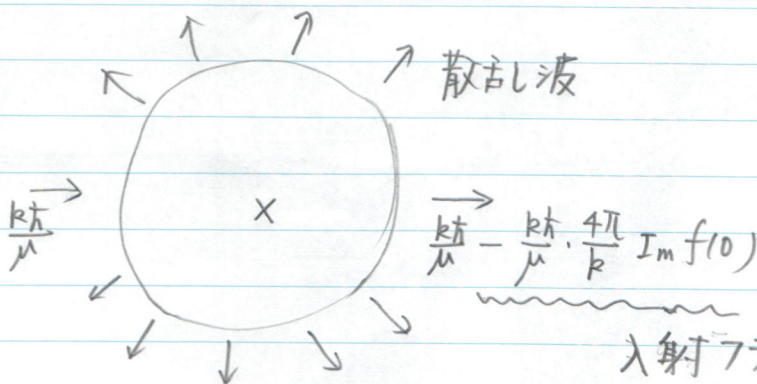 散乱波
kħ/μ
kħ/μ - kħ/μ · 4π/k Im f(0)
入射フ